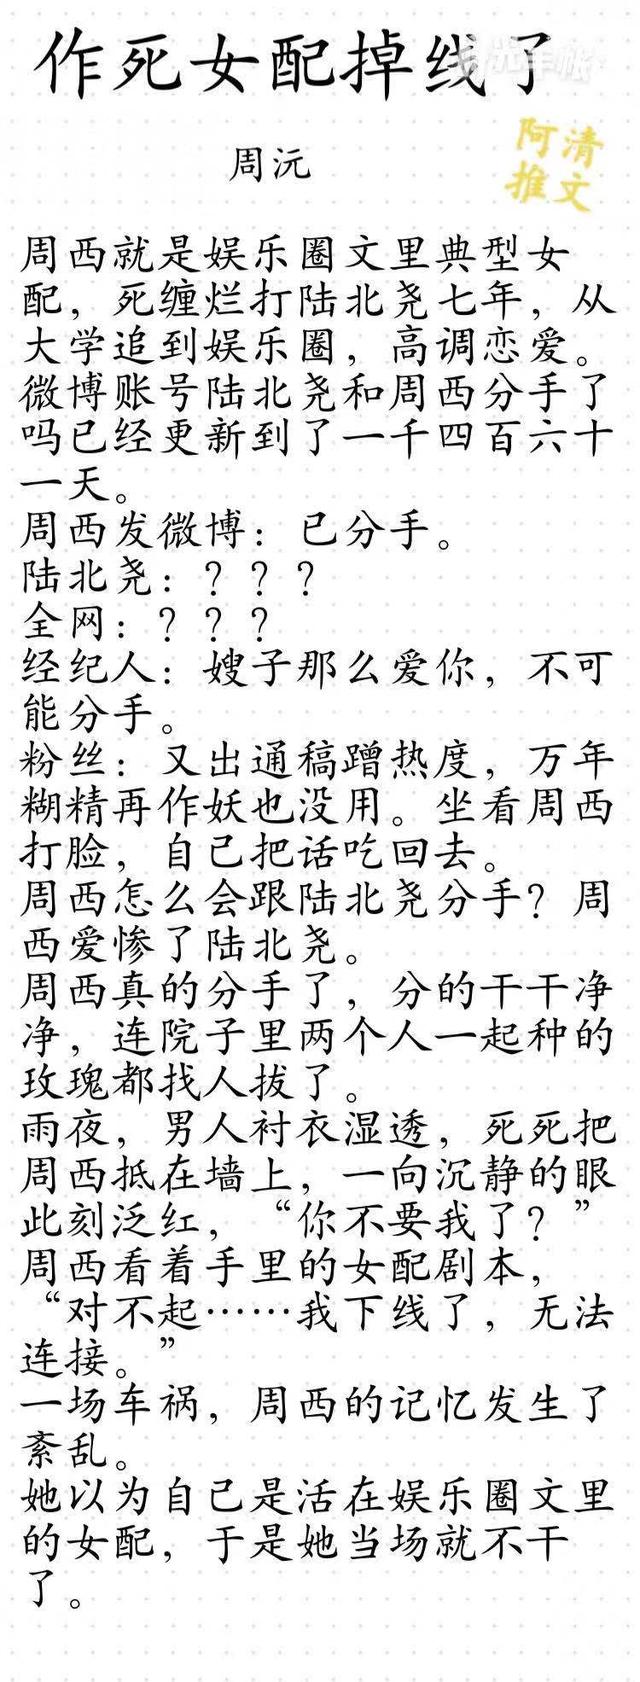 作死女配掉线了
周沅
阿清
推文
周西就是娱乐圈文里典型女
配，死缠烂打陆北尧七年，从
大学追到娱乐圈，高调恋爱。
微博账号陆北尧和周西分手了
吗已经更新到了一千四百六十
一天。
周西发微博：已分手。
陆北尧：？？？
全网：？？？
经纪人：嫂子那么爱你，不可
能分手。
粉丝：又出通稿蹭热度，万年
糊精再作妖也没用。坐看周西
打脸，自己把话吃回去。
周西怎么会跟陆北尧分手？周
西爱惨了陆北尧。
周西真的分手了，分的干干净
净，连院子里两个人一起种的
玫瑰都找人拔了。
雨夜，男人衬衣湿透，死死把
周西抵在墙上，一向沉静的眼
此刻泛红，“你不要我了？”
周西看着手里的女配剧本，
“对不起……我下线了，无法
连接。”
一场车祸，周西的记忆发生了
紊乱。
她以为自己是活在娱乐圈文里
的女配，于是她当场就不干
了。